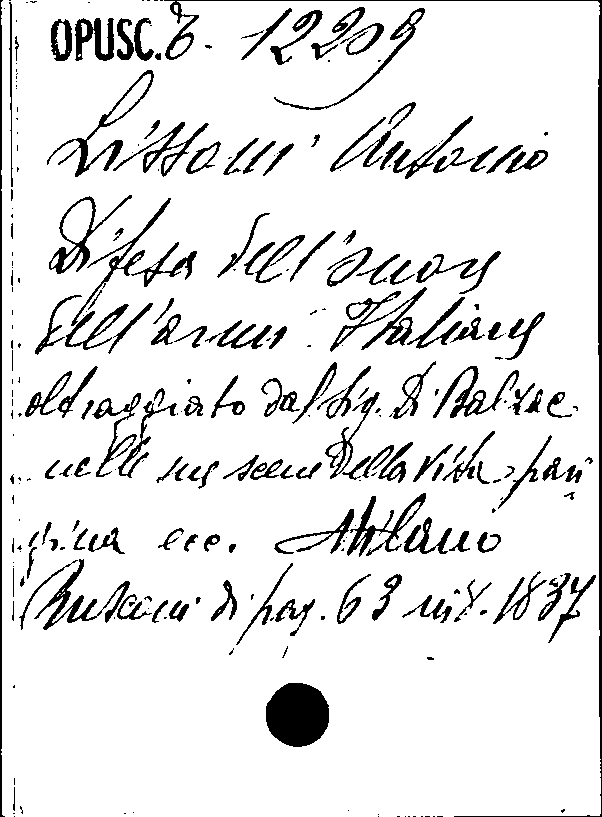 OPUSC. E. 12209
Lissoni Antonio
Difesa dell'onore
dell'armi Italiane
oltraggiato dal Sig. Di Balzac
nelle sue scene della vita pari
gina ecc. Milano
Rusconi di pag. 63 in 8. 1837